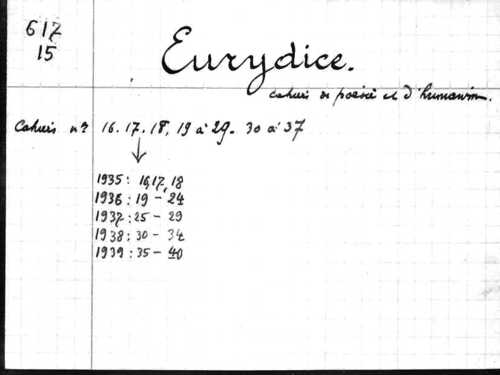 617
15
Eurydice.
Cahiers de poésie et d'humanism.
Cahiers n° 16. 17. 18, 19 à 29. 30 à 37
1935: 16, 17, 18
1936: 19 - 24
1937: 25 - 29
1938: 30 - 34
1939: 35 - 40